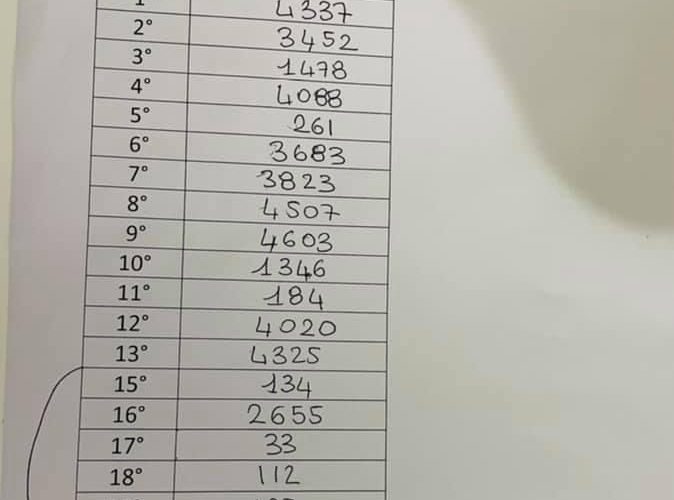 4337
2° 3452
3° 1478
4° 4088
5° 261
6° 3683
7° 3823
8° 4507
9° 4603
10° 1346
11° 184
12° 4020
13° 4325
15° 134
16° 2655
17° 33
18° 112